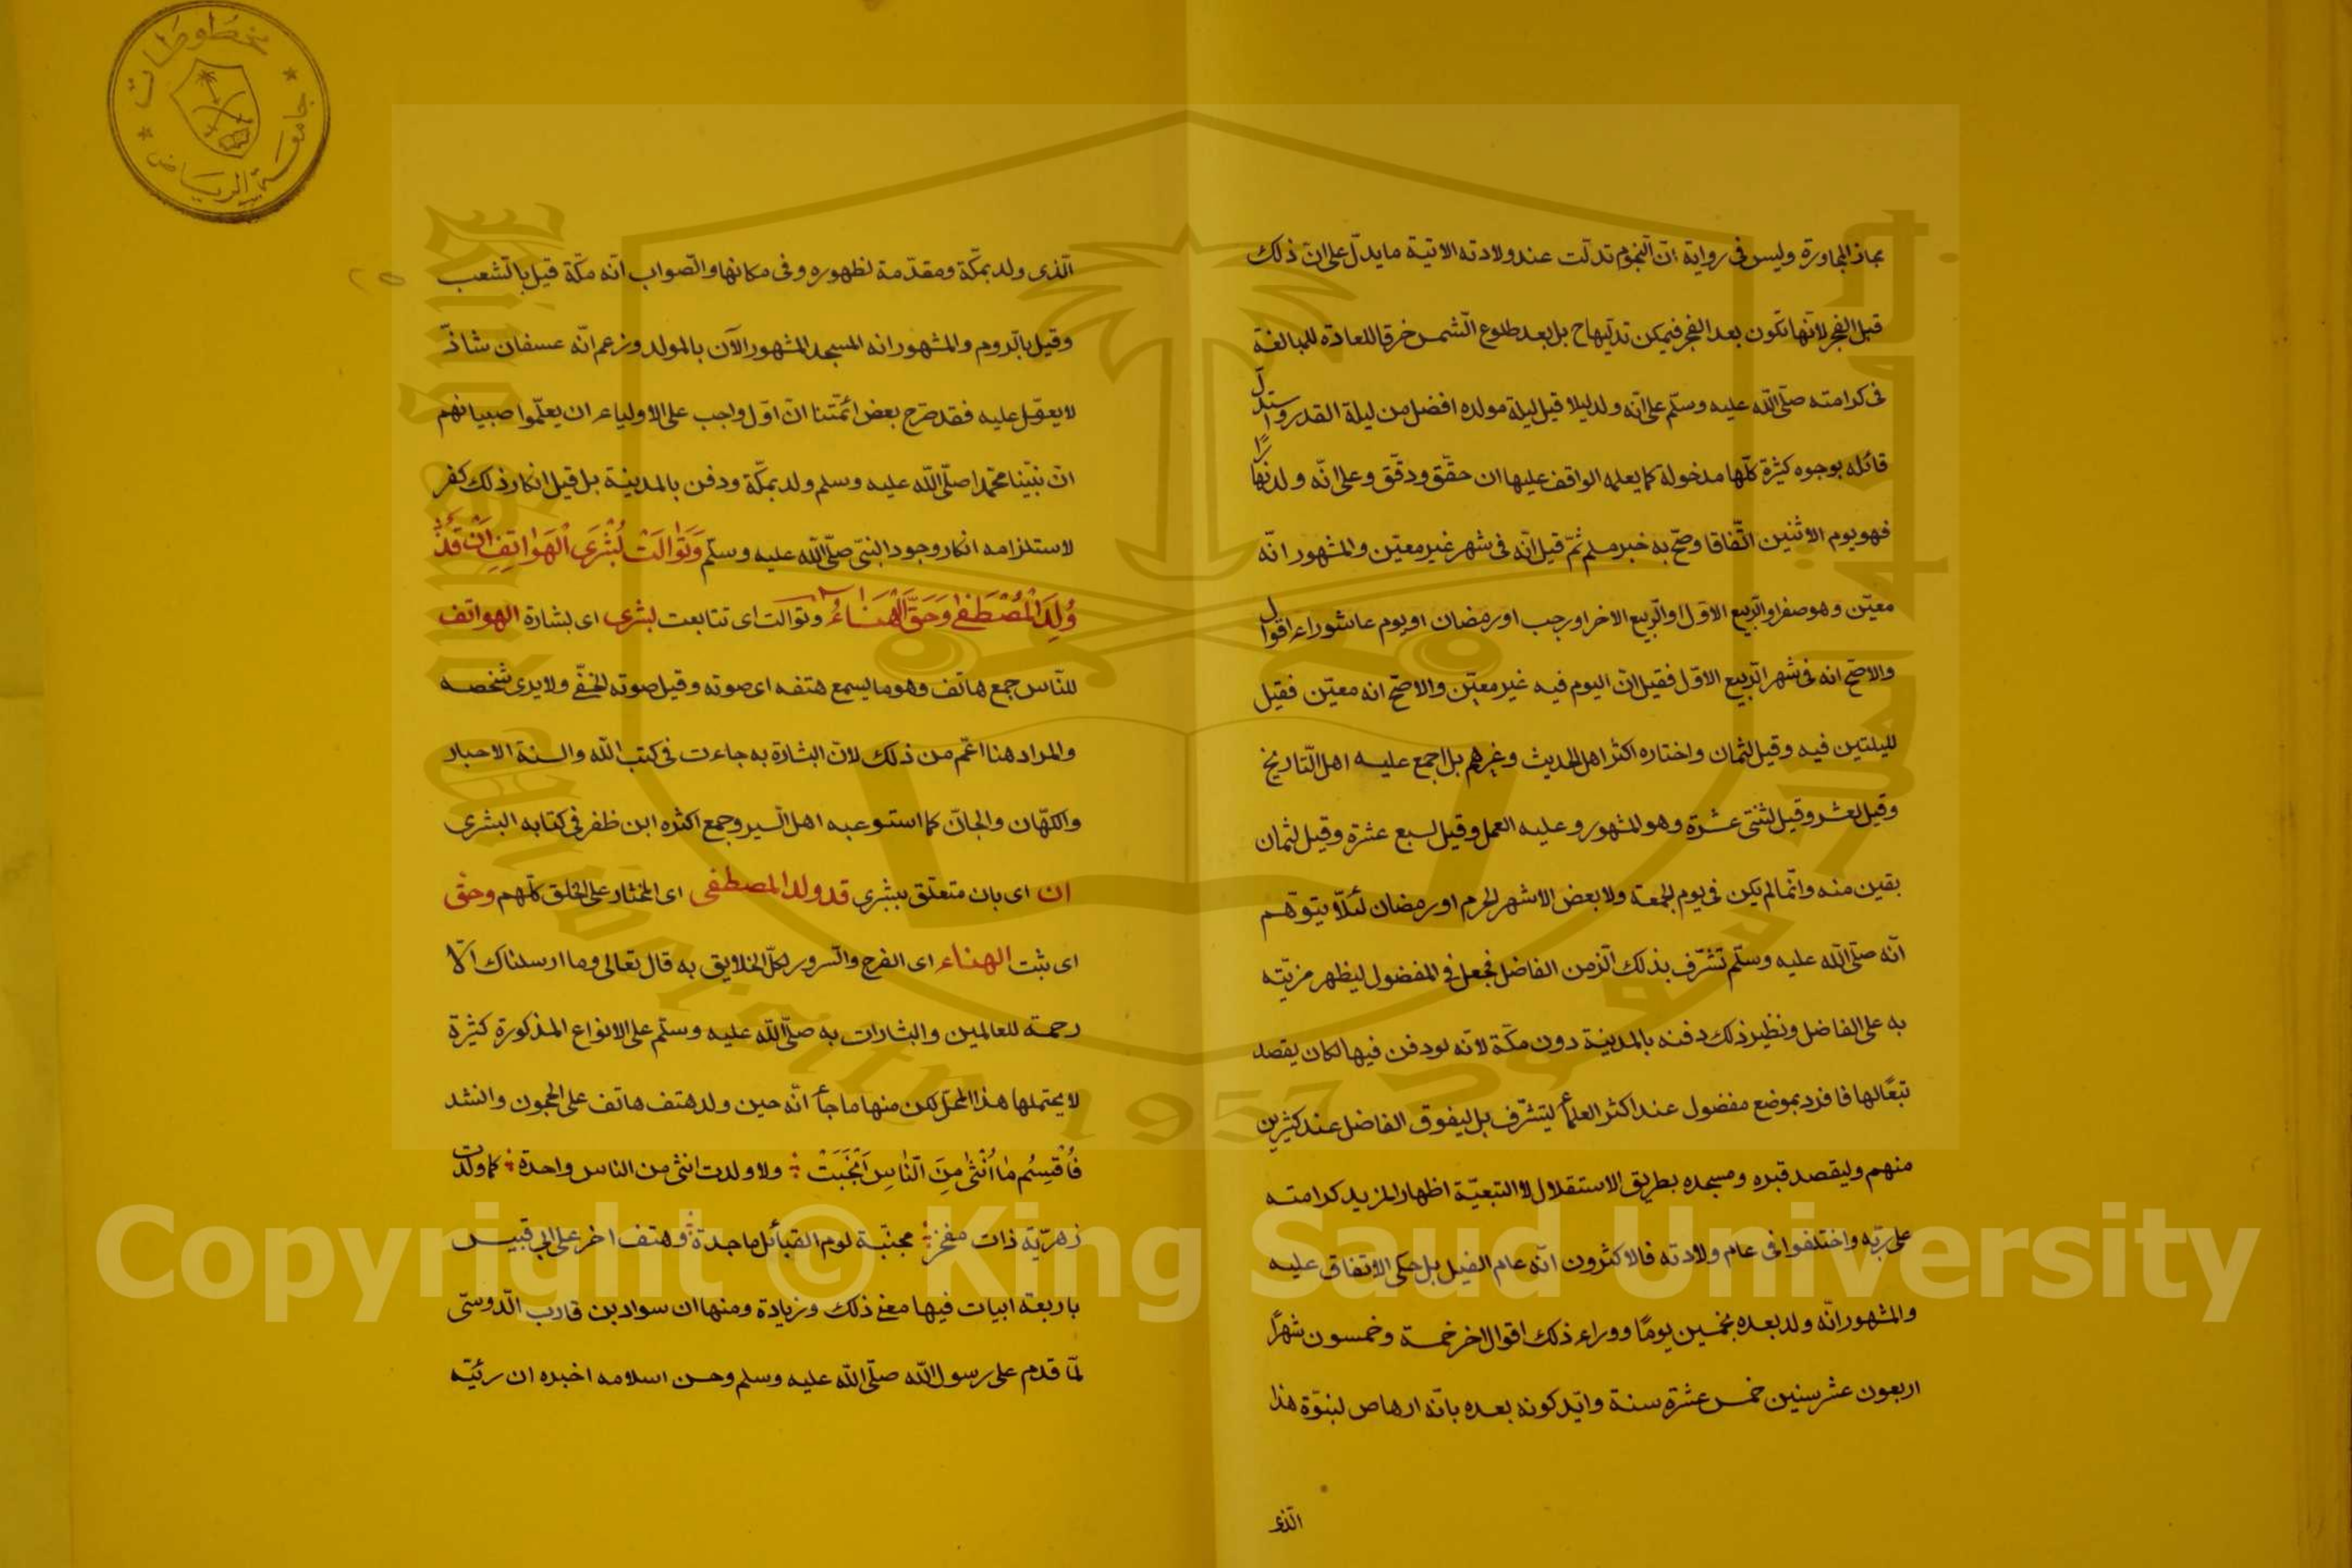 بمجاز المجاورة وليس فى رواية انّ النّجوم تدلّت عند ولادته الاتية ما يدلّ على انّ ذلك
قبل الفجر لانّها تكون بعد الفجر فيمكن تدلّيها ح بل بعد طلوع الشّمس خرقا للعادة للمبالغة
فى كرامته صلّى الله عليه وسلّم على انّه ولد ليلا قيل ليلة مولده افضل من ليلة القدر واستدلّ
قائله بوجوه كثيرة كلّها مدخولة كما يعلمه الواقف عليها ان حقّق ودقّق وعلى انّه ولد نهارًا
فهو يوم الاثنين اتّفاقا وصحّ به خبر مسلم ثمّ قيل انّه فى شهر غير معيّن والمشهور انّه
معيّن وهو صفر او الرّبيع الاوّل او الرّبيع الاخر او رجب او رمضان او يوم عاشوراء اقوال
والاصحّ انه فى شهر الرّبيع الاوّل فقيل انّ اليوم فيه غير معيّن والاصحّ انه معيّن فقيل
لليلتين فيه وقيل لثمان واختاره اكثر اهل الحديث وغيرهم بل اجمع عليه اهل التّاريخ
وقيل لعشر وقيل لثنتى عشرة وهو المشهور وعليه العمل وقيل لسبع عشرة وقيل لثمان
بقين منه وانّما لم يكن فى يوم الجمعة ولا بعض الاشهر الحرم او رمضان لئلّا يتوهّم
انّه صلّى الله عليه وسلّم تشرّف بذلك الزّمن الفاضل فجعل فى المفضول ليظهر مزيّته
به على الفاضل ونظير ذلك دفنه بالمدينة دون مكّة لانّه لو دفن فيها لكان يقصد
تبعًا لها فافرد بموضع مفضول عند اكثر العلمأ ليتشرّف بل ليفوق الفاضل عند كثيرين
منهم وليقصد قبره ومسجده بطريق الاستقلال لا التبعيّة اظهارا لمزيد كرامته
على ربّه واختلفوا فى عام ولادته فالاكثرون انّه عام الفيل بل حكى الاتفاق عليه
والمشهور انّه ولد بعده بخمسين يومًا ووراء ذلك اقوال اخر خمسة وخمسون شهرًا
اربعون عشر سنين خمس عشرة سنة وايّد كونه بعده بانّه ارهاص لنبوّة هذا
الّذى
الّذى ولد بمكّة ومقدّمة لظهوره وفى مكانها والصّواب انّه مكّة قيل بالشّعب
وقيل بالرّدم والمشهور انه المسجد المشهور الآن بالمولد وزعم انّه عسفان شاذّ
لا يعوّل عليه فقد صرّح بعض ائمّتنا انّ اوّل واجب على الاولياء ان يعلّموا صبيانهم
انّ نبيّنا محمّدا صلّى الله عليه وسلم ولد بمكّة ودفن بالمدينة بل قيل انكار ذلك كفر
لاستلزامه انكار وجود النبىّ صلّى الله عليه وسلّم وَتَوَالَتْ بُشْرَى الْهَوَاتِفِ اَنْ قَدْ
وُلِدَ الْمُصْطَفٰى وَحَقَّ الْهَنَاءُ وتوالت اى تتابعت بشرى اى بشارة الهواتف
للنّاس جمع هاتف وهو ما يسمع هتفه اى صوته وقيل صوته الخفّى ولا يرى شخصه
والمراد هنا اعّم من ذلك لانّ البشارة به جاءت فى كتب الله والسنة الاحبار
والكهّان والجانّ كما استوعبه اهل السّير وجمع اكثره ابن ظفر فى كتابه البشرى
ان اى بان متعلّق ببشرى قد ولد المصطفى اى المختار على الخلق كلّهم وحقّ
اى ثبت الهناء اى الفرح والسّرور لكلّ الخلايق به قال تعالى وما ارسلناك الّا
رحمة للعالمين والبشارات به صلّى الله عليه وسلّم على الانواع المذكورة كثيرة
لا يحتملها هذا المحلّ لكن منها ما جأ انّه حين ولد هتف هاتف على الحجون وانشد
فَاُقْسِمُ مٰا اُنْثٰى مِنَ النّٰاسِ اَنْجَبَتْ ولا ولدت انثى من الناس واحدة كما ولدت
زهريّة ذات مفخر مجنبة لوم القبأئل ماجدة وهتف اخر على ابى قبيس
باربعة ابيات فيها معنى ذلك وزيادة ومنها ان سواد بن قارب الدّوسىّ
لمّا قدم على رسول الله صلّى الله عليه وسلم وحسن اسلامه اخبره ان رئيّه
مخطوطات
جامعة الرياض
King Saud University
1957
جامعة الملك سعود
Copyright © King Saud University